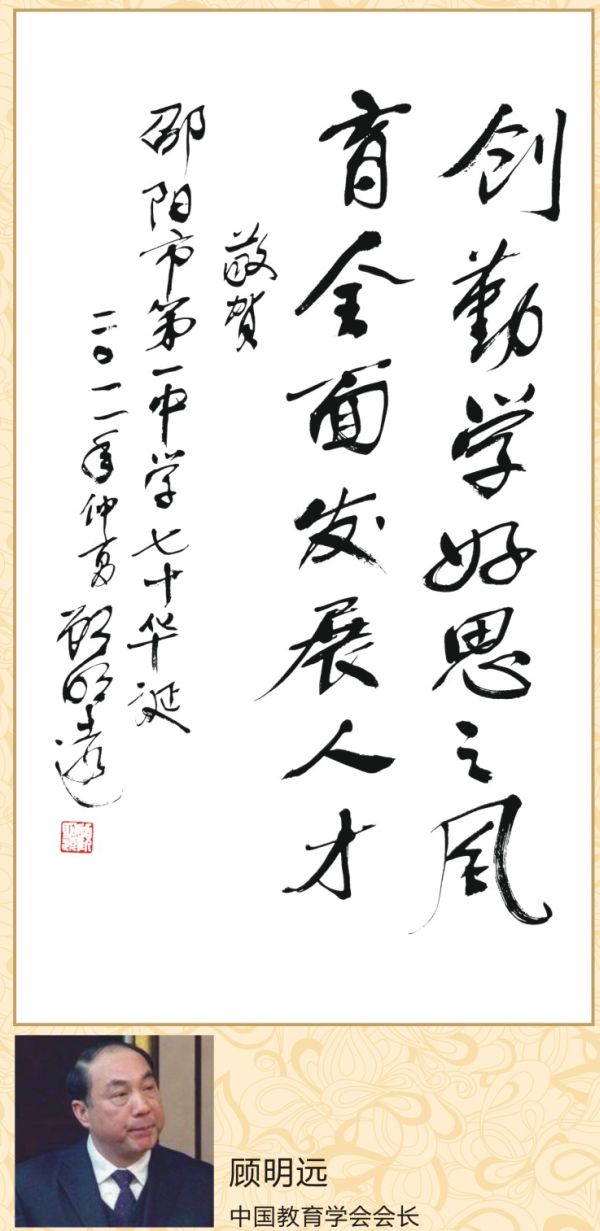 创勤学好思之风
育全面发展人才
敬贺
邵阳市第一中学七十华诞
二〇一一年仲夏 顾明远
顾明远
中国教育学会会长